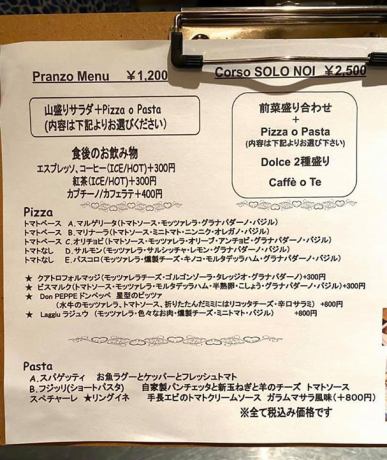 Pranzo Menu ￥1,200
Corso SOLO NOI ￥2,500
山盛りサラダ+Pizza o Pasta
(内容は下記よりお選びください)
前菜盛り合わせ
+
Pizza o Pasta
(内容は下記よりお選びください)
Dolce 2種盛り
Caffè o Te
食後のお飲み物
エスプレッソ、コーヒー(ICE/HOT)+300円
紅茶(ICE/HOT)+300円
カプチーノ/カフェラテ+400円
Pizza
トマトベース A.マルゲリータ(トマトソース・モッツァレラ・グラナパダーノ・バジル)
トマトベース B.マリナーラ(トマトソース・ミニトマト・ニンニク・オレガノ・バジル)
トマトベース C.オリチョビ(トマトソース・モッツァレラ・オリーブ・アンチョビ・グラナパダーノ・バジル)
トマトなし D.サルモン(モッツァレラ・サルシッチャ・レモン・グラナパダーノ・バジル)
トマトなし E.パスコロ(モッツァレラ・燻製チーズ・キノコ・モルタデッラハム・グラナパダーノ・バジル)
★ クアトロフォルマッジ(モッツァレラチーズ・ゴルゴンゾーラ・タレッジオ・グラナパダーノ)+300円
★ ビスマルク(トマトソース・モッツァレラ・モルタデッラハム・半熟卵・こしょう・グラナパダーノ・バジル)+300円
★ Don PEPPE ドンペッペ 星型のピッツァ
(水牛のモッツァレラ、トマトソース、折りたたんだミミにはリコッタチーズ・辛口サラミ) +800円
★ Laggiu ラジュウ (モッツァレラ・色々なお肉・燻製チーズ・ミニトマト・バジル) +800円
Pasta
A.スパゲッティ お魚ラグーとケッパーとフレッシュトマト
B.フジッリ(ショートパスタ) 自家製パンチェッタと新玉ねぎと羊のチーズ トマトソース
スペチャーレ ★リングイネ 手長エビのトマトクリームソース ガラムマサラ風味(+800円)
※全て税込み価格です